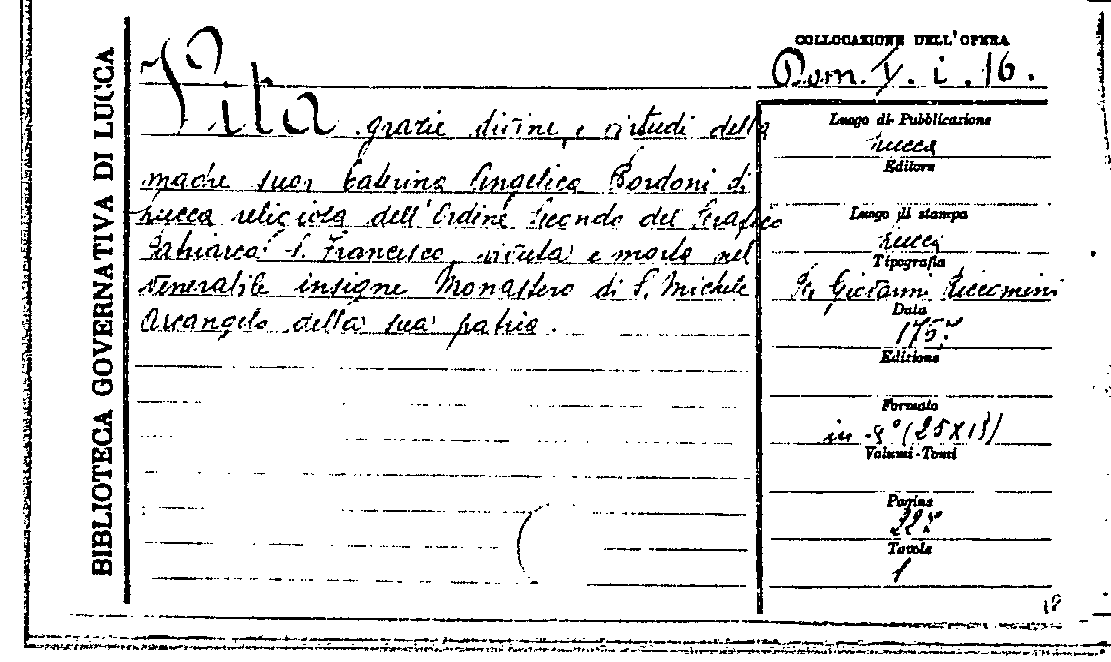 BIBLIOTECA GOVERNATIVA DI LUCCA
COLLOCAZIONE DELL'OPERA
Dom. V. i. 16.
Vita, grazie divine, e virtudi della
madre suor Caterina Angelica Bordoni di
Lucca religiosa dell'Ordine Secondo del Serafico
Patriarca S. Francesco, vissuta e morta nel
venerabile insigne Monastero di S. Michele
Arcangelo della sua patria.
Luogo di Pubblicazione
Lucca
Editore
Luogo di stampa
Lucca
Tipografia
Per Giovanni Riccomini
Data
Edizione
Formato
in-8° (25X18)
Volumi-Tomi
Pagine
Tavole
1
18